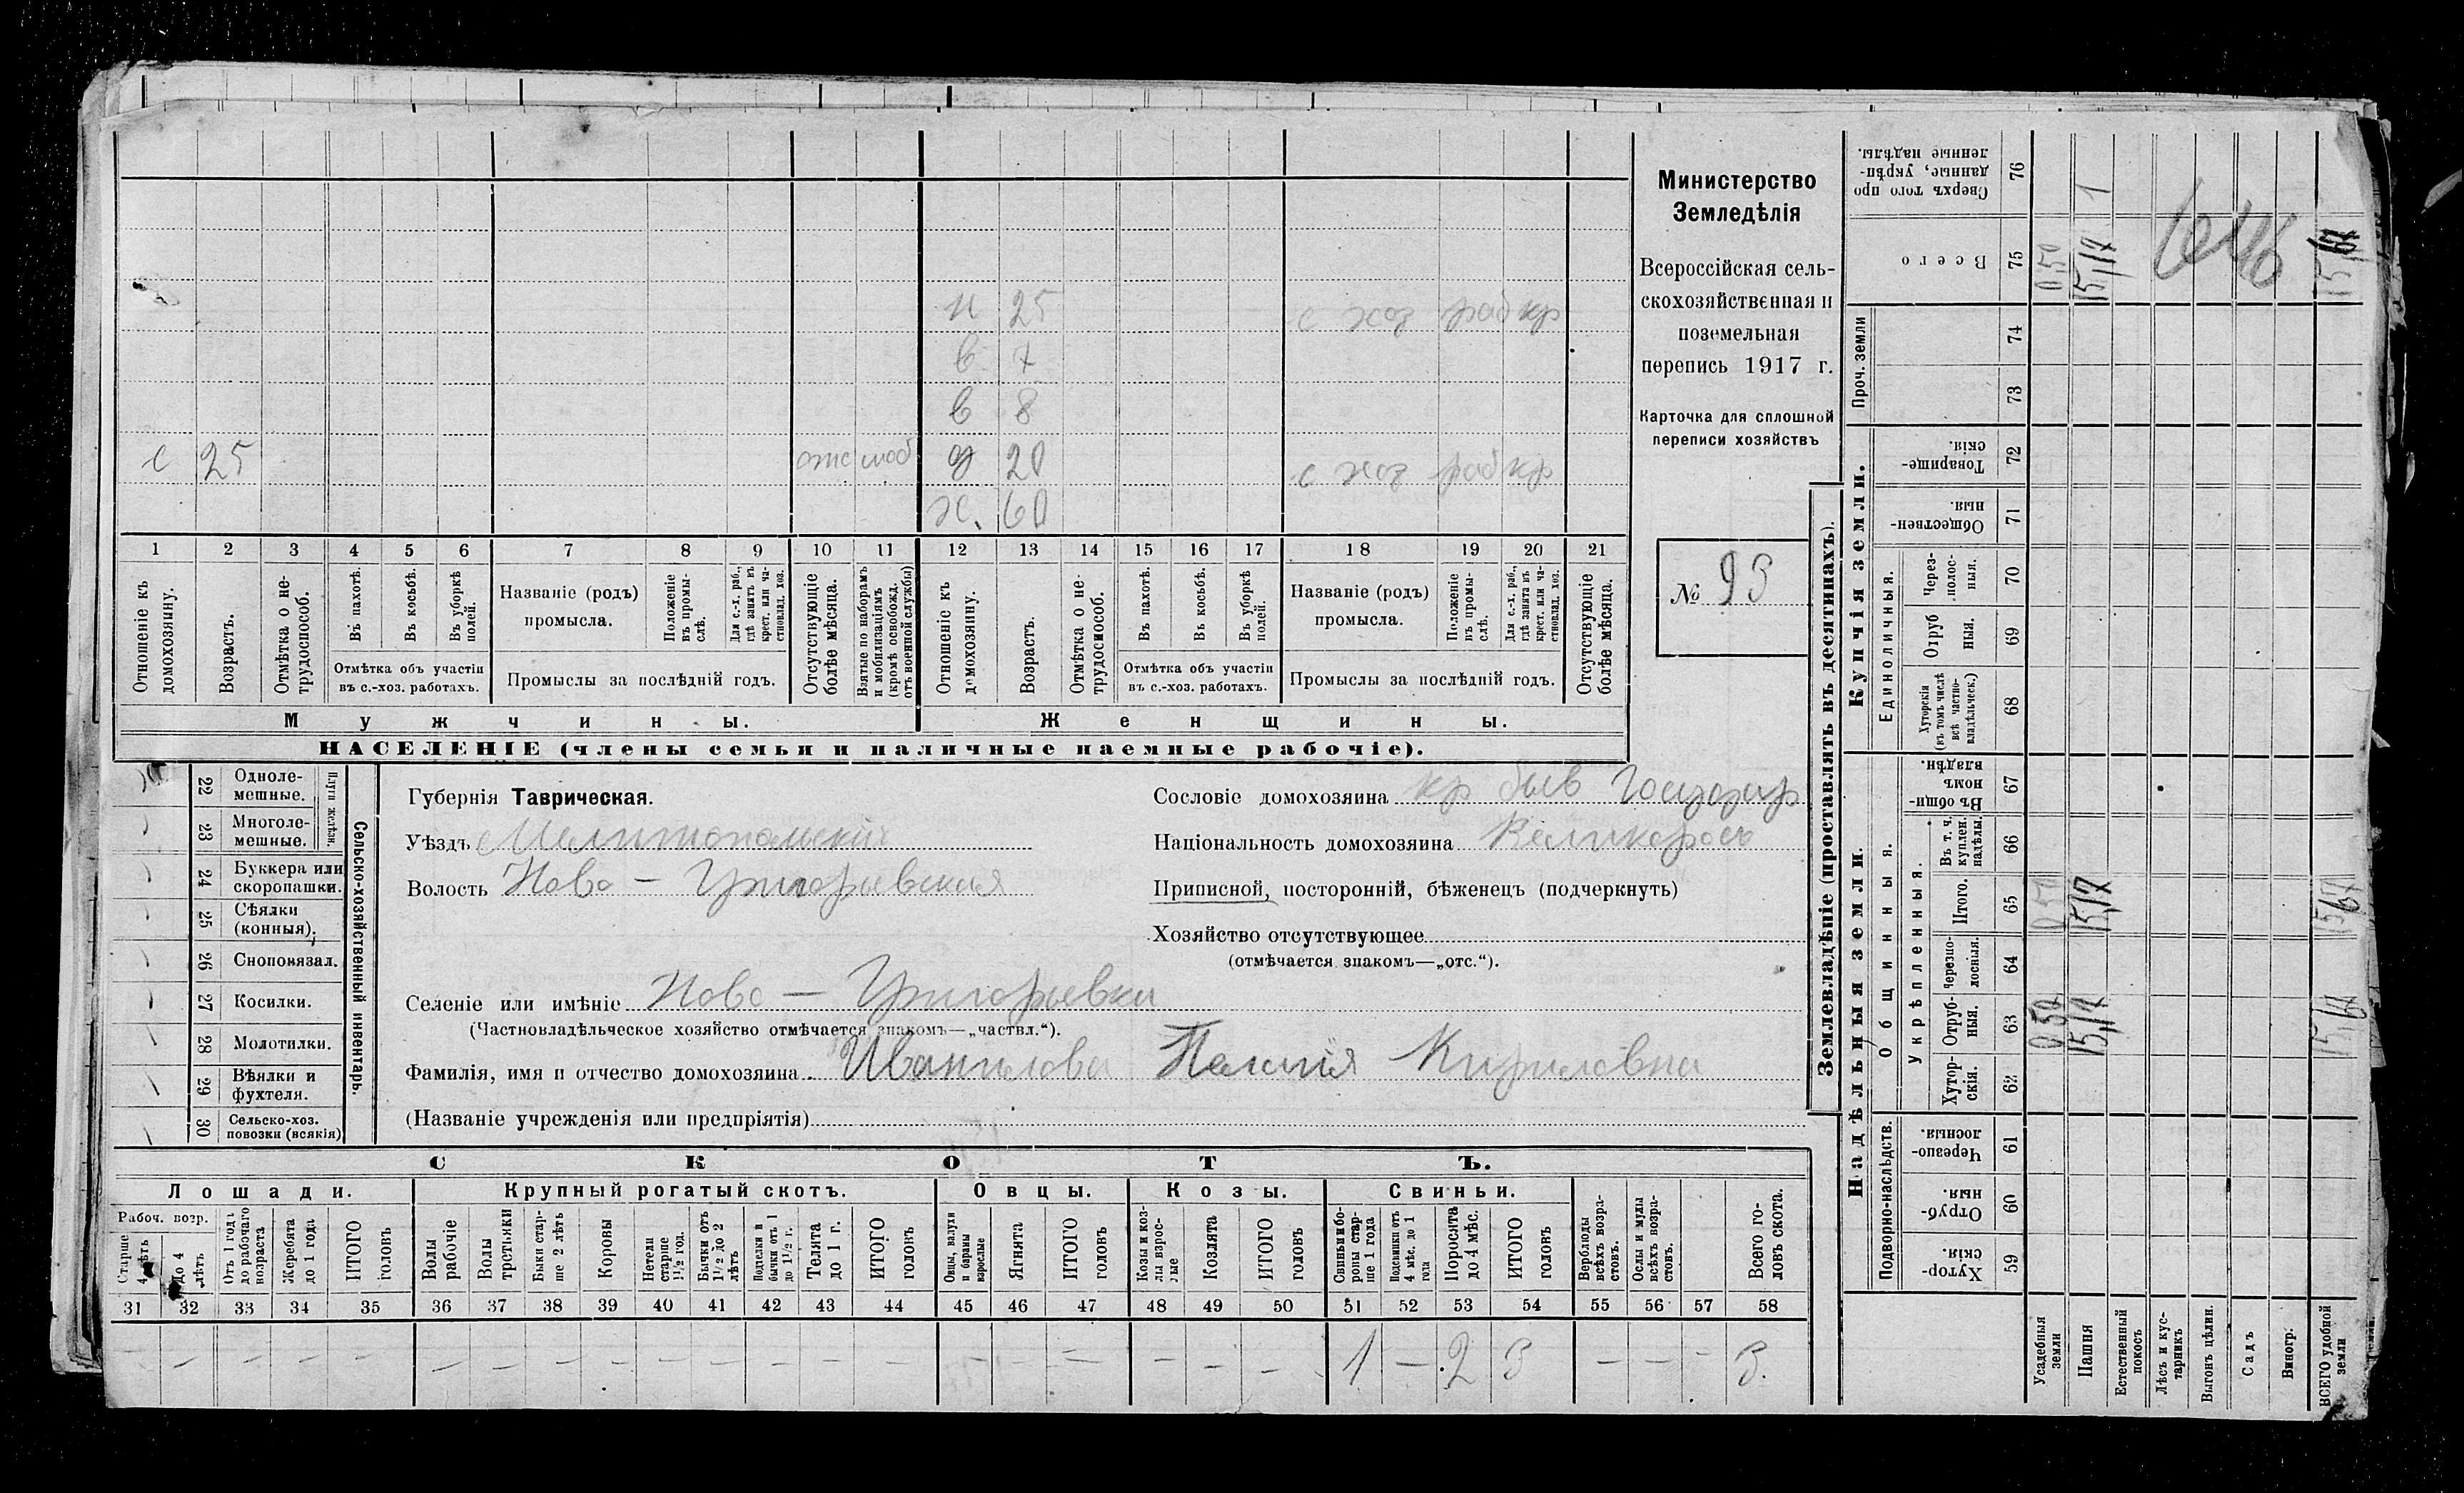 н 25 с хоз раб кр
в 7
в 8
с 25 отс моб д 20 с хоз раб кр
ж. 60
1 2 3 4 5 6 7 8 9 10 11 12 13 14 15 16 17 18 19 20 21
Отношеніе къ домохозяину.
Возрастъ.
Отмѣтка о не-трудоспособ.
Въ пахотѣ.
Въ косьбѣ.
Въ уборкѣ полей.
Отмѣтка объ участіи
въ с.-хоз. работахъ.
Названіе (родъ)
промысла.
Положеніе въ промы-слѣ.
Для с.-х. раб., гдѣ занятъ въ крест. или ча-стновлад. хоз.
Промыслы за послѣдній годъ.
Отсутствующіе болѣе мѣсяца.
Взятые по наборамъ и мобилизаціямъ (кромѣ освобожд. отъ военной службы)
Отношеніе къ домохозяину.
Возрастъ.
Отмѣтка о не-трудоспособ.
Въ пахотѣ.
Въ косьбѣ.
Въ уборкѣ полей.
Отмѣтка объ участіи
въ с.-хоз. работахъ.
Названіе (родъ)
промысла.
Положеніе въ промы-слѣ.
Для с.-х. раб., гдѣ занята въ крест. или ча-стновлад. хоз.
Промыслы за послѣдній годъ.
Отсутствующіе болѣе мѣсяца.
Мужчины.
Женщины.
НАСЕЛЕНІЕ (члены семьи и наличные наемные рабочіе).
Министерство
Земледѣлія
Всероссійская сель-
скохозяйственная и
поземельная
перепись 1917 г.
Карточка для сплошной
переписи хозяйствъ
№ 93
22 Одноле-мешные.
23 Многоле-мешные.
Плуги желѣзн.
24 Буккера или скоропашки.
25 Сѣялки (конныя).
26 Сноповязал.
27 Косилки.
28 Молотилки.
29 Вѣялки и фухтеля.
30 Сельско-хоз. повозки (всякія)
Сельско-хозяйственный инвентарь.
Губернія Таврическая.
Уѣздъ Мелитопольскій
Волость Ново - Григорьевская
Сословіе домохозяина кр быв Государ
Національность домохозяина Великоросъ
Приписной, посторонній, бѣженецъ (подчеркнуть)
Хозяйство отсутствующее
(отмѣчается знакомъ—„отс.“).
Селеніе или имѣніе Ново - Григорьевка
(Частновладѣльческое хозяйство отмѣчается знакомъ—„частвл.“).
Фамилія, имя и отчество домохозяина Иванилова Кириловна
(Названіе учрежденія или предпріятія)
СКОТЪ.
Лошади. Крупный рогатый скотъ. Овцы. Козы. Свиньи.
Рабоч. возр.
Старше 4 лѣтъ
До 4 лѣтъ
Отъ 1 года до рабочаго возраста
Жеребята до 1 года
ИТОГО головъ
Волы рабочіе
Волы третьяки
Быки стар-ше 2 лѣтъ
Коровы
Нетели старше 1½ год.
Бычки отъ 1½ до 2 лѣтъ
Подтелки и бычки отъ 1 до 1½ г.
Телята до 1 г.
ИТОГО головъ
Овцы, валухи и бараны взрослые
Ягнята
ИТОГО головъ
Козы и коз-лы взрос-лые
Козлята
ИТОГО головъ
Свиньи и бо-ровы стар-ше 1 года
Подсвинки отъ 4 мѣс. до 1 года
Поросята до 4 мѣс.
ИТОГО головъ
Верблюды всѣхъ возра-стовъ.
Ослы и мулы всѣхъ возра-стовъ.
Всего го-ловъ скота.
31 32 33 34 35 36 37 38 39 40 41 42 43 44 45 46 47 48 49 50 51 52 53 54 55 56 57 58
— — — — — — — — — — — — — — — — — — — 1 — 2 3 — — — 3.
Землевладѣніе (проставлять въ десятинахъ).
Купчія земли.
Надѣльныя земли.
Проч. земли
Единоличныя.
Общинныя.
Укрѣпленныя.
Подворно-наслѣдств.
Сверхъ того про данные, укрѣп-ленные надѣлы. 76
Всего 75
74
73
Товарище-скія. 72
Обществен-ныя. 71
Через-полос-ныя. 70
Отруб ныя. 69
Хуторскія (въ томъ числѣ всѣ частно-владѣльческ.) 68
Въ общи-номъ владѣн. 67
Въ т. ч. куплен. надѣлы. 66
Итого. 65
Черезпо-лосныя. 64
Отруб-ныя. 63
Хутор-скія. 62
Черезпо-лосныя. 61
Отруб-ныя. 60
Хутор-скія. 59
Усадебныя земли
Пашня
Естественный покосъ
Лѣсъ и кус-тарникъ
Выгонъ цѣлин.
Садъ
Виногр.
ВСЕГО удобной земли
0,50 15,17 1 15,67
0,50 15,17 15,67
0,50 15,17 15,67